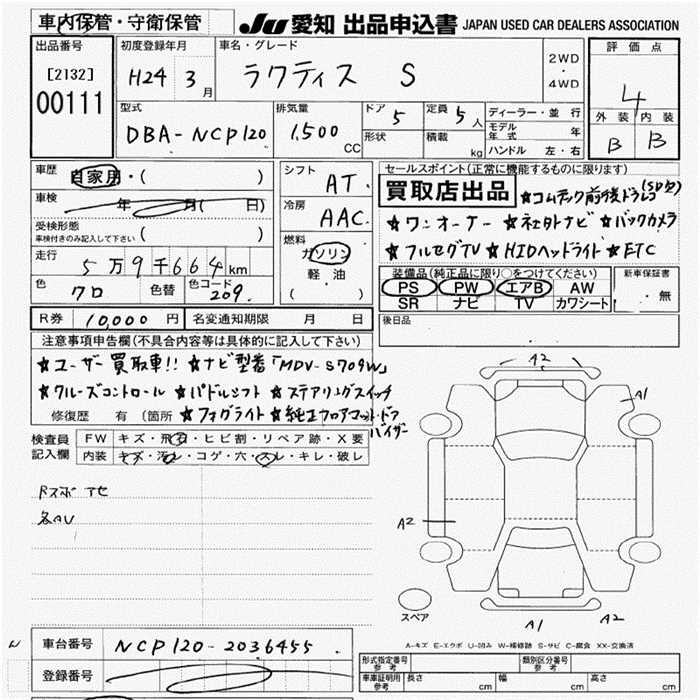 車内保管・守衛保管
JU 愛知 出品申込書 JAPAN USED CAR DEALERS ASSOCIATION
出品番号
[2132]
00111
初度登録年月
H24 3月
車名・グレード
ラクティス S
2WD
・
4WD
評価点
4
外装 内装
B B
型式
DBA-NCP120
排気量
1,500 CC
ドア 5
定員 5人
形状
積載 kg
ディーラー・並行
モデル年式 年
ハンドル 左・右
車歴
自家用・( )
車検
年 月( 日)
受検形態
車検付きのみ記入して下さい ( )
走行
5万9千664km
色
クロ
色替
色コード
209.
シフト
AT.
冷房
AAC.
燃料
ガソリン
軽油
( )
セールスポイント(正常に機能するものに限ります)
買取店出品 ★コムテック前後ドラレコ
★ワンオーナー ★社外ナビ ★バックカメラ
★フルセグTV ★HIDヘッドライト ★ETC
装備品(純正品に限り○をつけてください)
PS PW エアB AW
SR ナビ TV カワシート
新車保証書
・無
後日品
R券 10,000円 名変通知期限 月 日
注意事項申告欄(不具合内容等は具体的に記入して下さい)
★ユーザー買取車!! ★ナビ型番「MDV-S709W」
★クルーズコントロール ★パドルシフト ★ステアリングスイッチ
修復歴 有 (箇所 ★フォグライト ★純正フロアマット・ドア
バイザー
検査員
記入欄
FW キズ・飛石・ヒビ割・リペア跡・X要
内装 キズ・汚レ・コゲ・穴・スレ・キレ・破レ
A2
A1
A2
A1
A2
スペア
A-キズ E-エクボ U-凹み W-補修跡 S-サビ C-腐食 XX-交換済
車台番号 NCP120-2036455.
登録番号
形式指定番号
参考
類別区分番号
参考
車庫証明用
参考
長さ cm 幅 cm 高さ cm